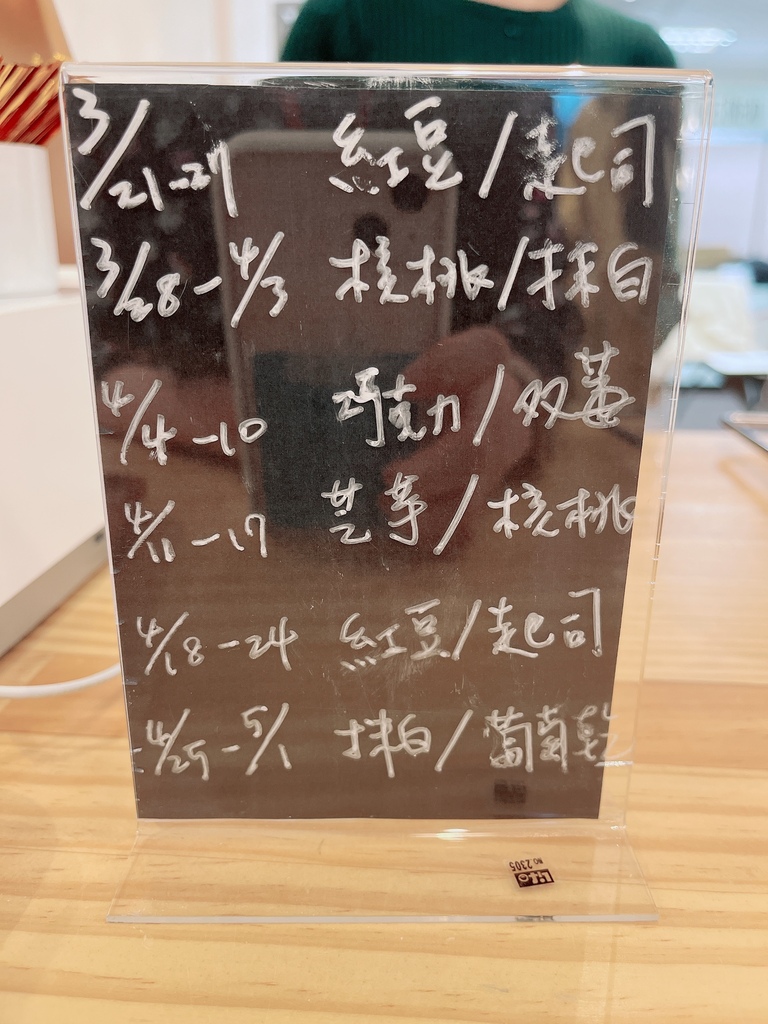 3/21-27 紅豆/起司
3/28-4/3 核桃/抹白
4/4-10 巧克力/双莓
4/11-17 芝芋/核桃
4/18-24 紅豆/起司
4/25-5/1 抹白/葡萄乾
Lito
NO.2305